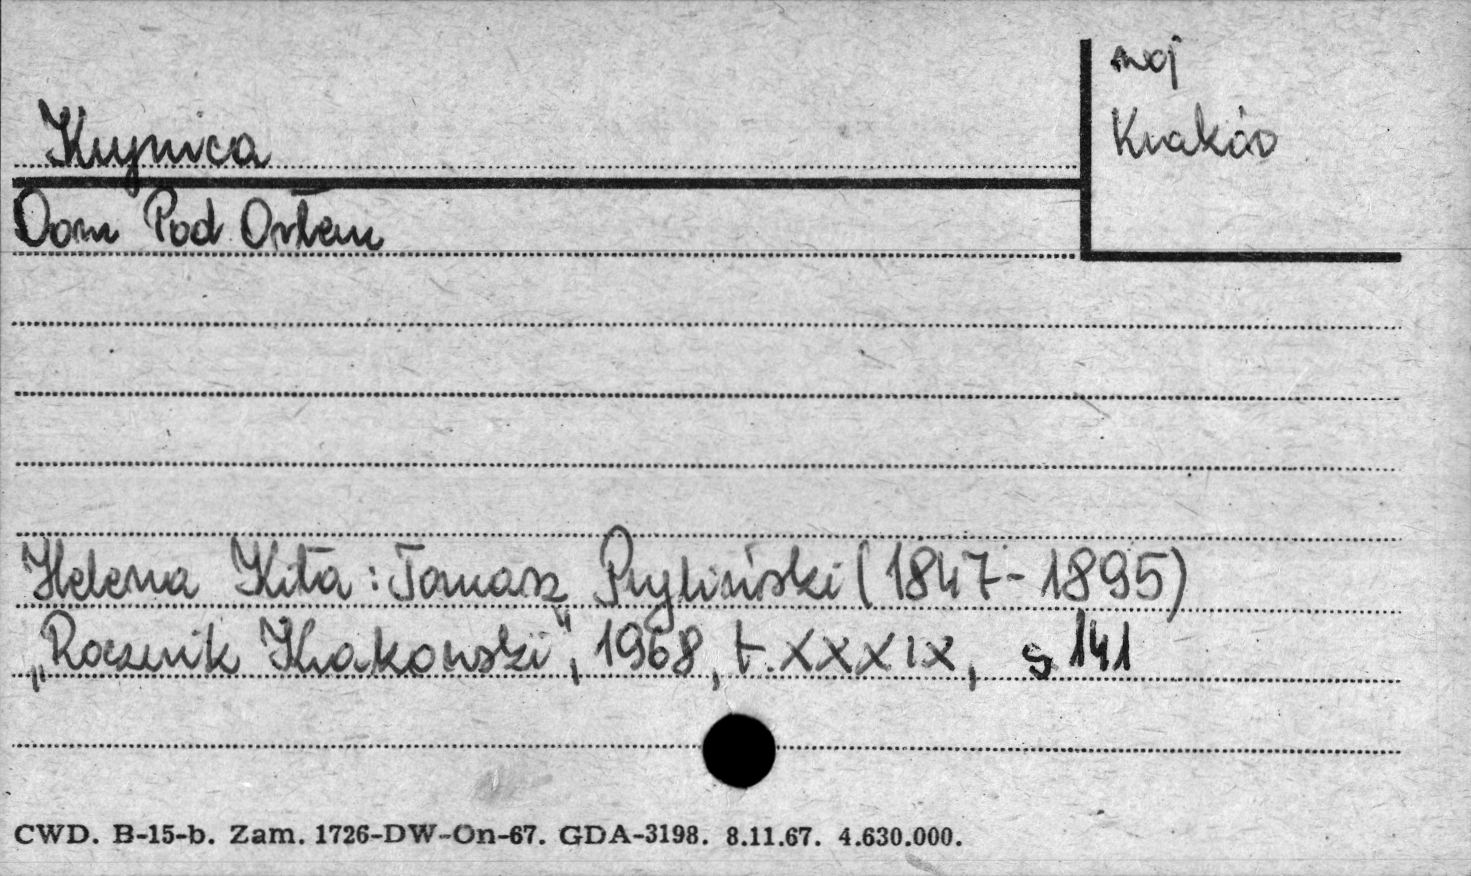 Krynica
woj
Kraków
Dom Pod Orłem
Helena Kita: Tomasz Pryliński (1847-1895)
„Rocznik Krakowski", 1968, t. XXXIX, s 141
CWD. B-15-b. Zam. 1726-DW-On-67. GDA-3198. 8.11.67. 4.630.000.